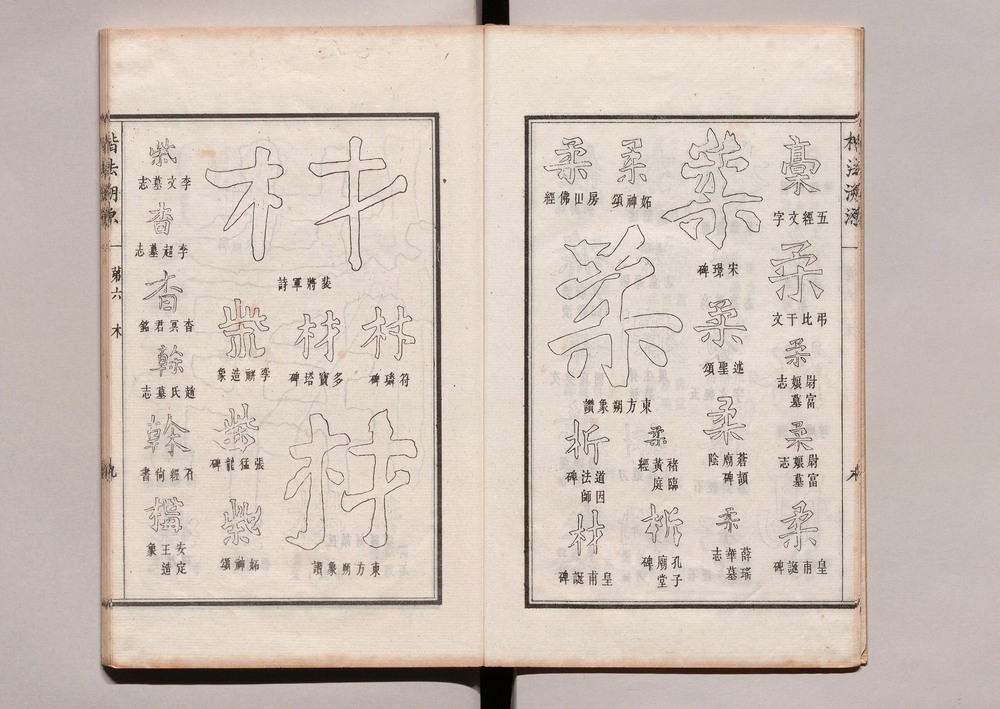 楷法溯源
木
稾
五經文字
柔
弔比干文
柔
尉富娘墓志
柔
尉富娘墓志
柔
皇甫誕碑
柔
宋璟碑
柔
述聖頌
柔
蒼頡廟碑陰
柔
薛瑤華墓志
柔
妬神頌
柔
房山佛經
柔
東方朔象讚
柔
褚臨黃庭經
析
孔子廟堂碑
析
道因法師碑
材
皇甫誕碑
材
裴將軍詩
材
符璘碑
材
多寶塔碑
材
東方朔象讚
柴
造象
柴
張猛龍碑
柴
妬神頌
柴
李文墓志
杳
李超墓志
杳
杳冥君銘
榦
趙氏墓志
榦
石經尚書
安定王造象
楷法溯源
弟六 木
九